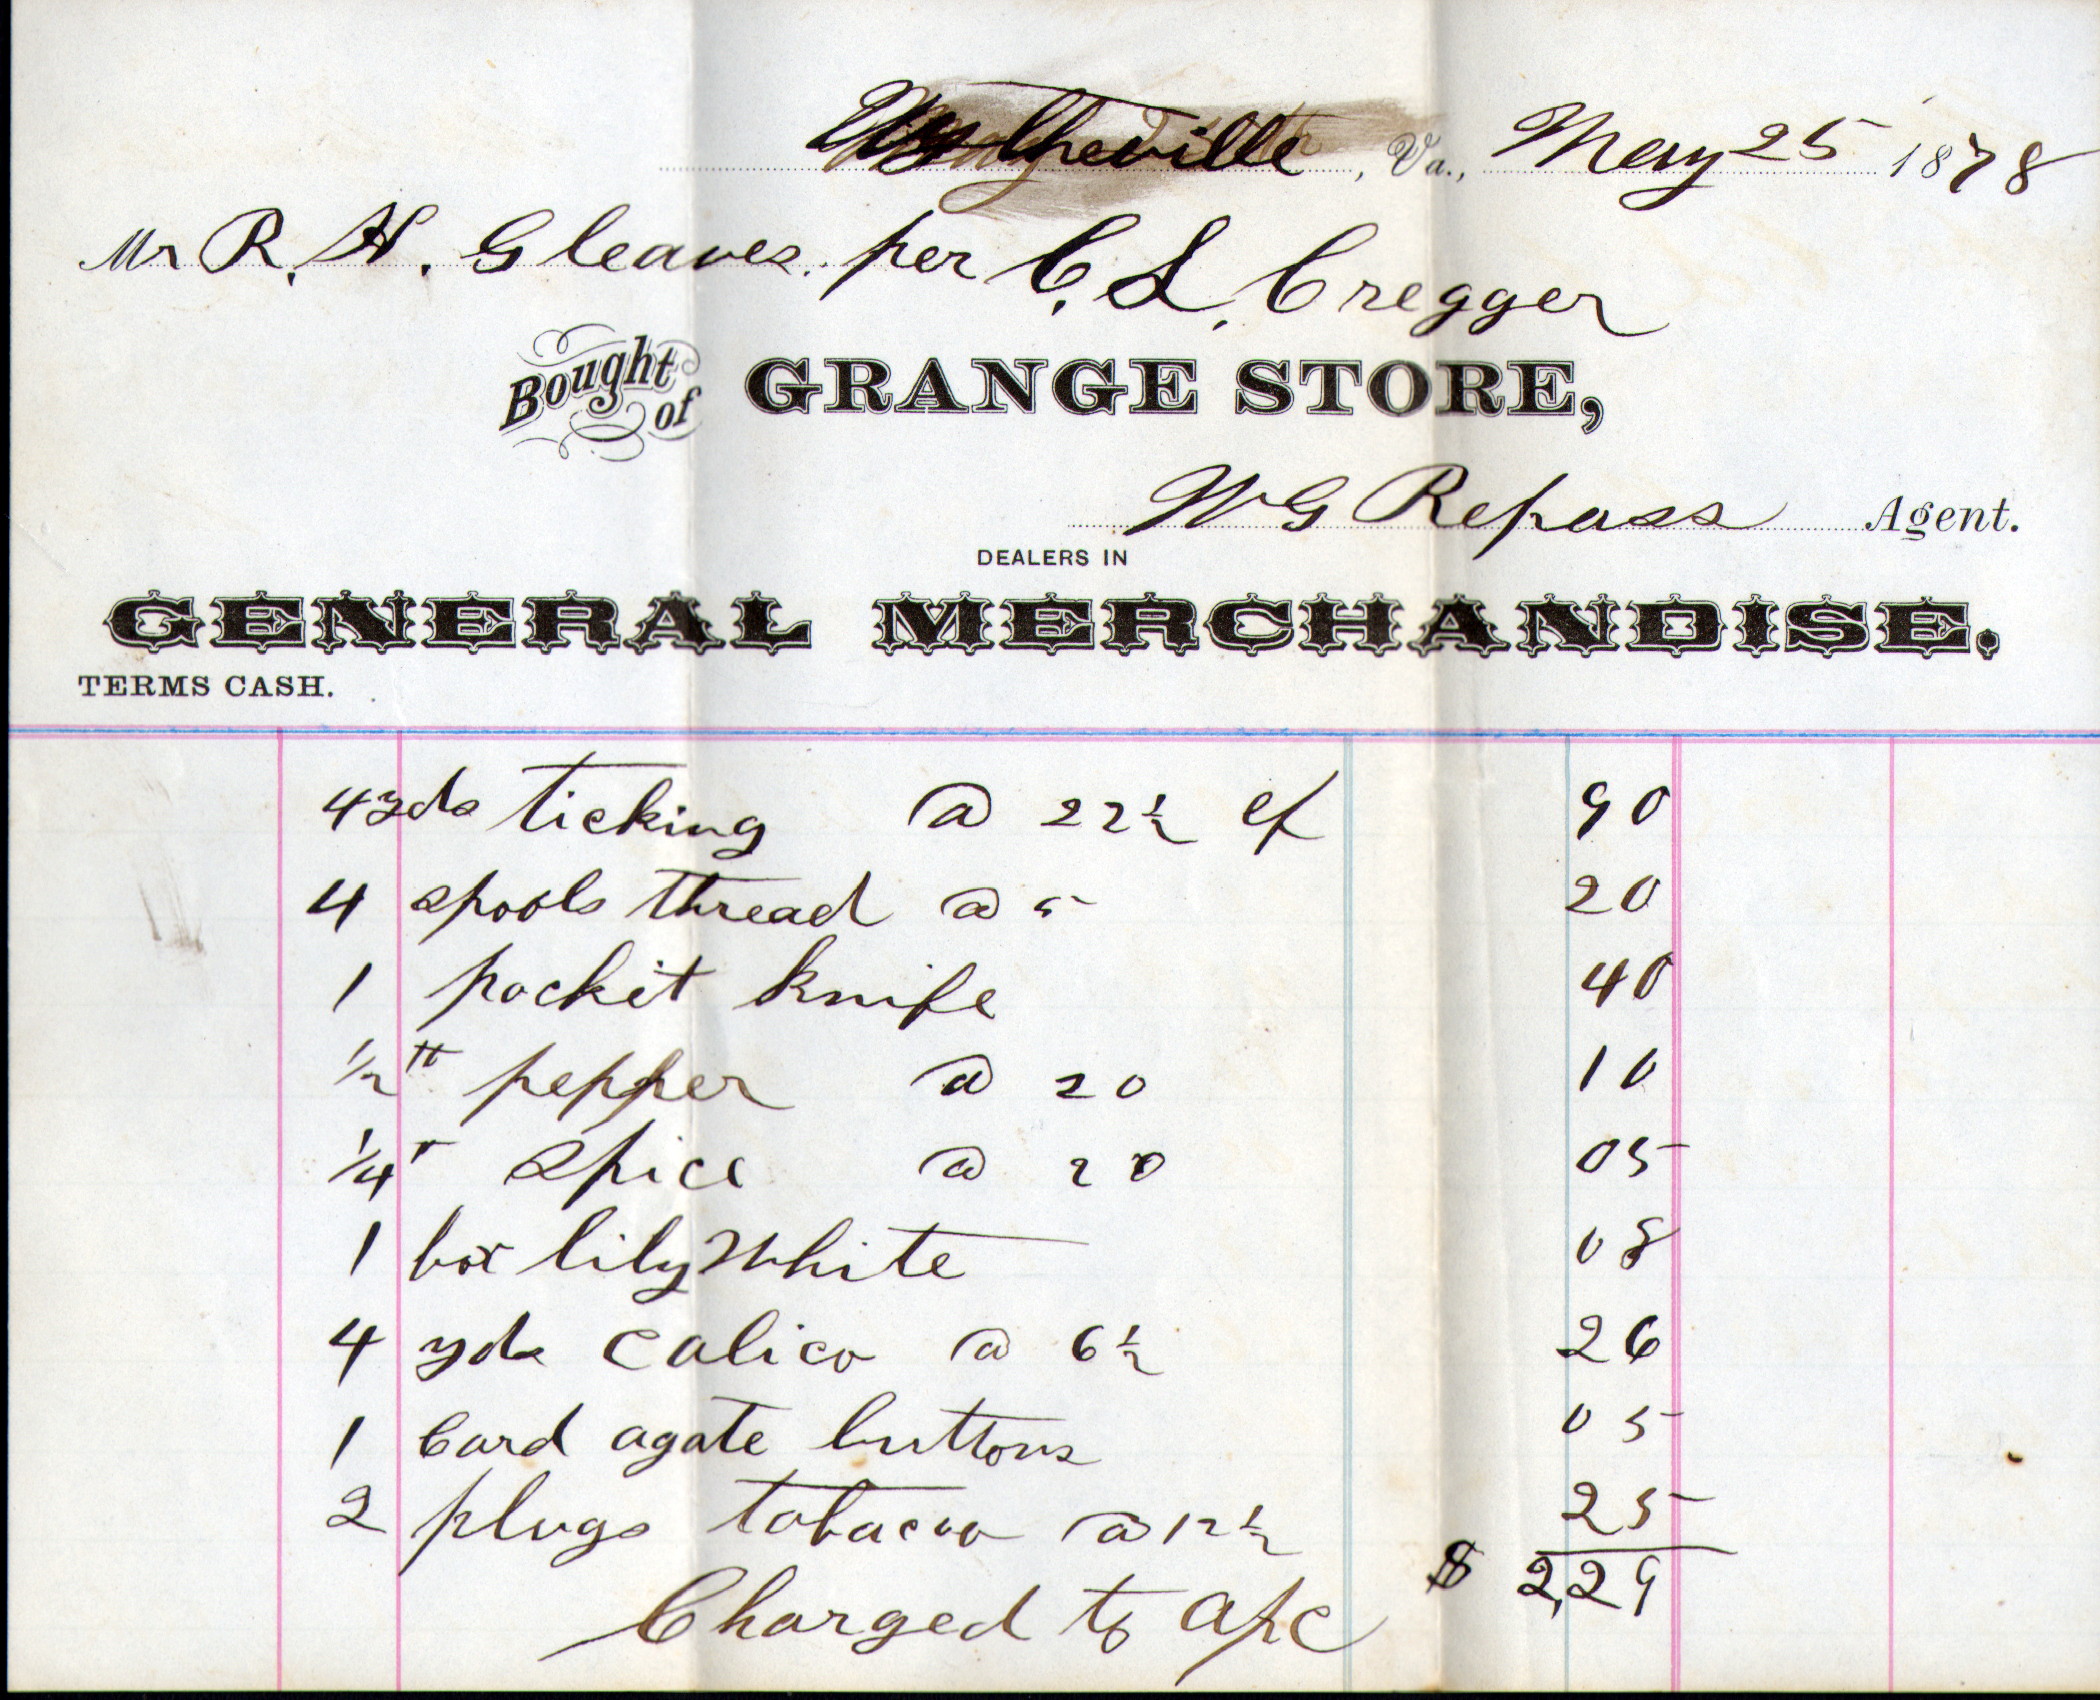 Wytheville, Va., May 25 1878
Mr R. H. Gleaves. per C. L. Cregger
Bought of GRANGE STORE,
W G Repass Agent.
DEALERS IN
GENERAL MERCHANDISE.
TERMS CASH.
4 yds ticking @ 22½ cts 90
4 spools thread @ 5 20
1 pocket knife 40
½ lb pepper @ 20 10
¼ " spice @ 20 05
1 box lily white 08
4 yds calico @ 6½ 26
1 Card agate buttons 05
2 plugs tobacco @ 12½ 25
$ 2,29
Charged to a/c